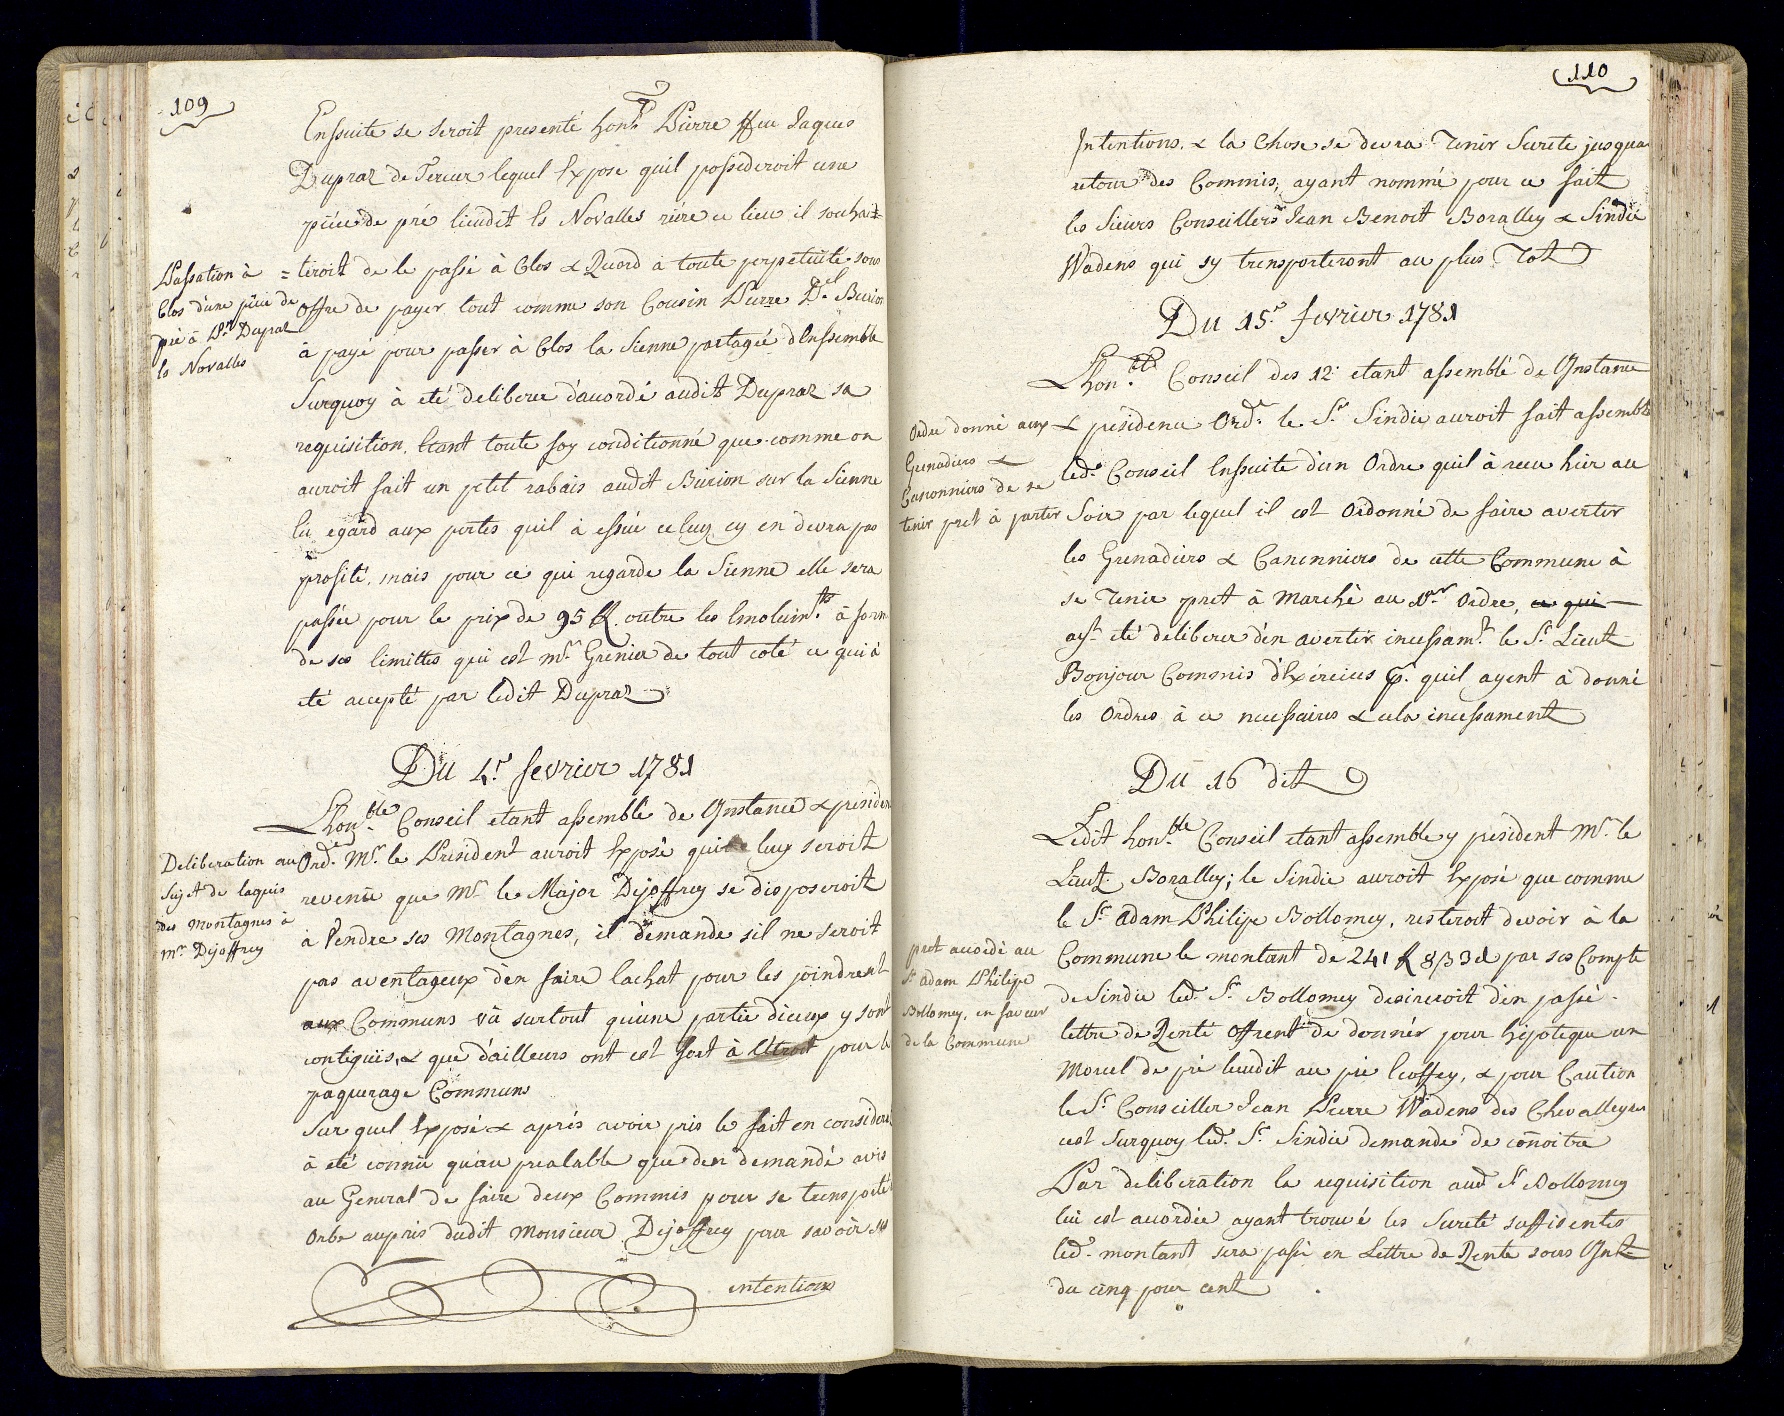 109
Ensuite se seroit presenté hon.ble Pierre ffeu Jaques
Dupraz de Fereur lequel Expose quil possederoit une
piéce de pré lieudit Es Novalles riere ce lieu il souhait=
Passation à
Clos d'une piéce de
pré à P.re Dupraz
Es Novalles
=teroit de le passé à Clos & Record à toute perpetuité sous
offre de payer tout comme son Cousin Pierre D.el Burion
à payé pour passer à Clos la Sienne partagée d'Enssemble
Surquoy à eté deliberer d'acordé audit Dupraz sa
requisition, Etant toute foy conditionné que comme on
auroit fait un petit rabais audit Burion sur la Sienne
Eu egard aux pertes quil à essüe celuy cy en devra pas
profité, mais pour ce qui regarde la Sienne elle sera
passée pour le prix de 95 ff. outre les Emolum.ts à form
de ses limittes qui est m.r Grenier de tout coté ce qui à
eté accepté par ledit Dupraz
Du 4.e fevrier 1781
Lhon.ble Conseil etant assemblé de Instance & presiden
Deliberation au
Sujet de laquis
des Montagnes à
m.r Dejoffrey
Ord.re M.r le President auroit Exposé qui luy seroit
revenü que M.r le Major Dejoffrey se disposeroit
à Vendre ses Montagnes, il demande sil ne seroit
pas aventageux den faire lachat pour les joindrent
aux Communs vû surtout qu'une partie diceux y sont
contigüis, & que d'ailleurs ont est fort à Etroit pour le
paquerage Communs
Sur quel Exposé & aprés avoir pris le fait en considera
à eté connüe qu'au prealable que den demandé avis
au General de faire deux Commis pour se transporté
Orbe auprés dudit Monsieur Dejoffrey pour savoir ses
intentions
110
Intentions & la Chose se devra Tenir Surete jusqua
retour des Commis, ayant nommé pour ce fait
les Sieurs Conseillers Jean Benoit Boralley & Sindic
Wadens qui sy transporteront au plus Tot
Du 15.e fevrier 1781
Lhon.ble Conseil des 12 etant assemblé de Instance
Ordre donné aux
Grenadiers &
Canonniers de se
tenir pret à partir
& presidence Ord.re le S.r Sindic auroit fait assemblé
led.t Conseil Enssuite d'un Ordre quil à recu hier au
Soir par lequel il est Ordonné de faire avertir
les Grenadiers & Canonniers de cette Commune à
se Tenir pret à Marché au 1.er Ordre, ce qui
ayt eté deliberer d'en avertir incessam.t le S.r Lieut
Bonjour Commis d'Exércices p. quil ayent à donné
les Ordres à ce necessaires & cela incessament
Du 16 dit
Ledit hon.ble Conseil etant assemblé y president M.r le
Lieut. Boralley; le Sindic auroit Exposé que comme
le S.r Adam Philipe Bollomey, resteroit devoir à la
pret accordé au
S.r Adam Philipe
Bollomey, en faveur
de la Commune
Commune le montant de 241 ff 8/3 3d par ses Compte
de Sindic led.t S.r Bollomey desireroit d'en passé
lettre de Rente Offrent de donnér pour hÿpoteque un
Morcel de pré lieudit au pré Ecoffey, & pour Caution
le S.r Conseiller Jean Pierre Wadens des Chevalleyres
cest Surquoy led.t S.r Sindic demande de connoitre
Par deliberation la requisition aud.t S.r Bollomey
lui est accordée ayant trouvé les Sureté suffisentes
led.t montant sera passé en Lettre de Rente sous Int.
du cinq pour cent